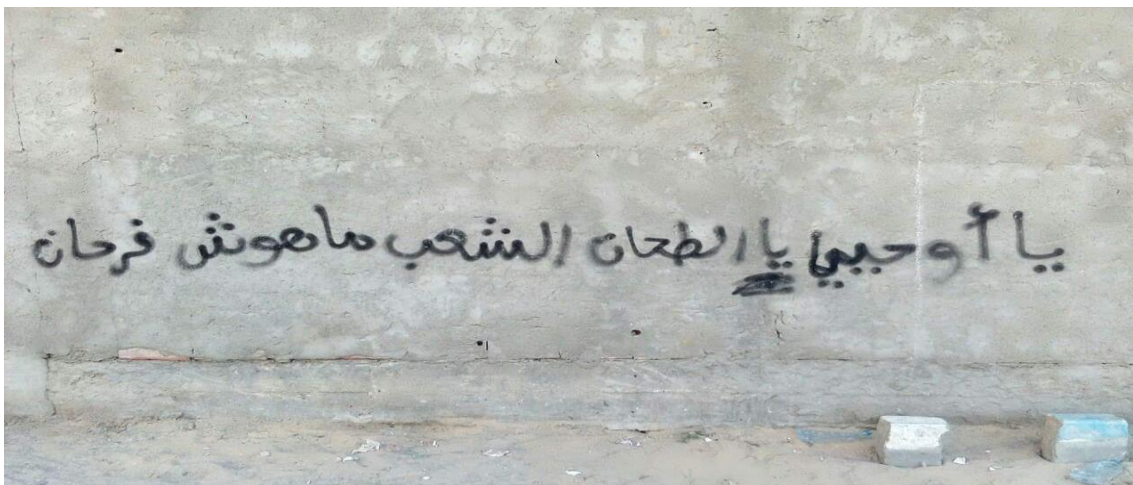 يا أوحيي يا الطحان الشعب ماهوش فرحان